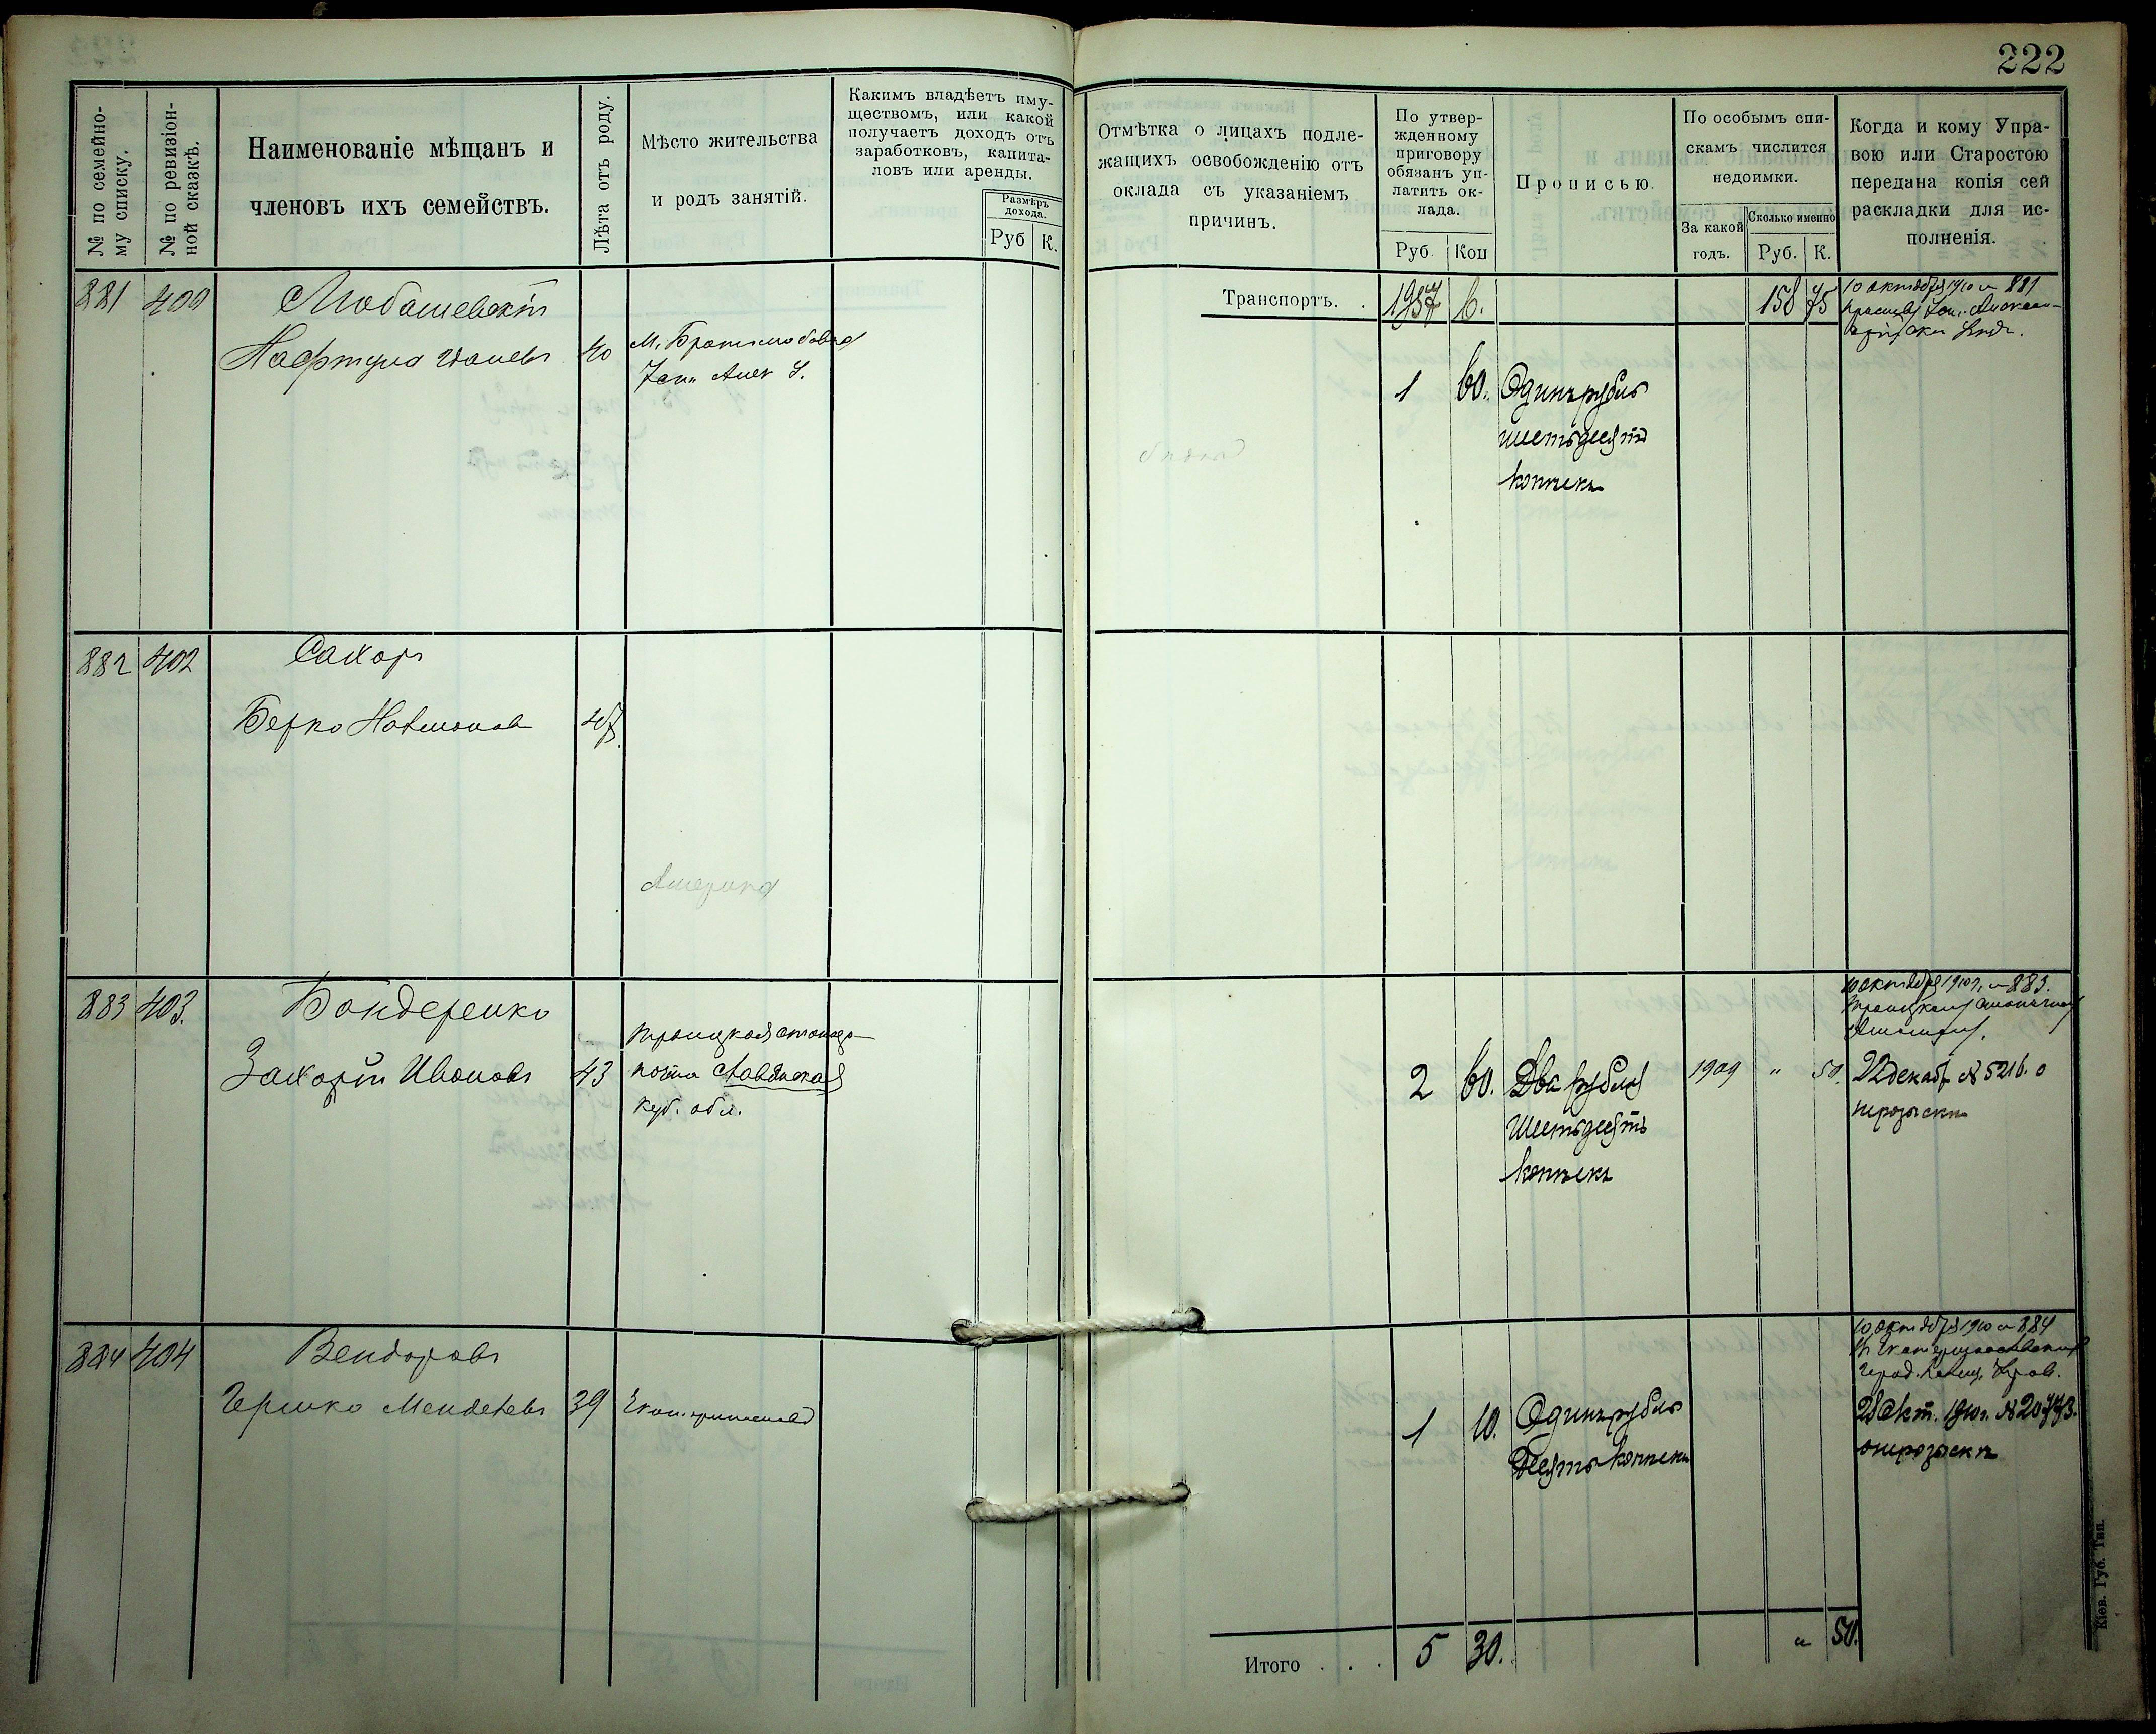 222
№ по семейно-
му списку.
№ по ревизіон-
ной сказкѣ.
Наименованіе мѣщанъ и
членовъ ихъ семействъ.
Лѣта отъ роду.
Мѣсто жительства
и родъ занятій.
Какимъ владѣетъ иму-
ществомъ, или какой
получаетъ доходъ отъ
заработковъ, капита-
ловъ или аренды.
Размѣръ
дохода.
Руб К.
Отмѣтка о лицахъ подле-
жащихъ освобожденію отъ
оклада съ указаніемъ
причинъ.
По утвер-
жденному
приговору
обязанъ уп-
латить ок-
лада.
Руб. Коп
Прописью.
По особымъ спи-
скамъ числится
недоимки.
За какой
годъ.
Сколько именно
Руб. К.
Когда и кому Упра-
вою или Старостою
передана копія сей
раскладки для ис-
полненія.
Транспортъ. . 1957 6. 158 75
881 400 Любашевскій
Нафтула 40
1 60. Одинъ рубль
шестьдесятъ
копѣекъ
10 октября 1910 № 881
882 402 Сахаръ
Берко 47
Америка
883 403. Бондеренко
Захарій Ивановъ 43
Славянская
Куб. обл.
2 60. Два рубля
шестьдесятъ
копѣекъ
1909 " 50.
10 октября 1910 г. № 883.
22 декабр № 5216. о
розыскѣ
884 404 Вендоровъ
Гершко Менделевъ 39
1 10. Одинъ рубль
десять копѣекъ
10 октября 1910 № 884
28 Окт. 1910 г. № 20773.
о розыскѣ
Итого . . . 5 30. " 50.
Кіев. Губ. Тип.